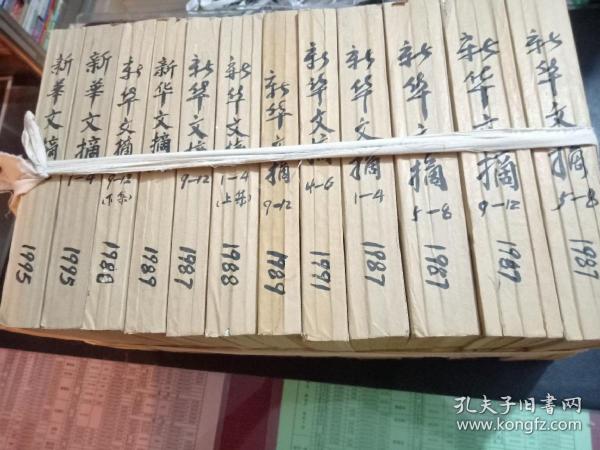 新華文摘
1995
新華文摘
1-4
1995
新华文摘
9-12
(下条)
新华文摘
1989
新华文摘
9-12
1987
新华文摘
1-4
(上茶)
1988
新华文摘
9-12
1989
新华文摘
4-6
1991
新华文摘
1-4
1987
新华文摘
5-8
1987
新华文摘
9-12
1987
新华文摘
5-8
1987
孔夫子旧书网
www.kongfz.com